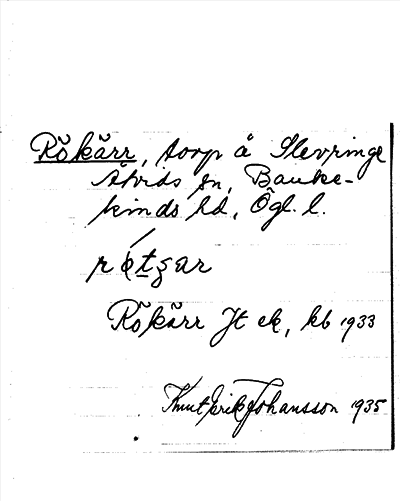 Rökärr, torp å Slevringe
Åtvids sn, Banke-
kinds hd, Ögl. l.
Rökärr Jt ek, kb 1933
Knut Erik Johansson 1935